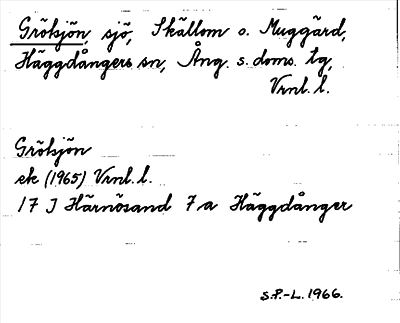 Grötsjön, sjö, Skällom o. Muggärd,
Häggdångers sn, Ång. s. doms. tg,
Vrnl. l.
Grötsjön
ek (1965) Vrnl. l.
17 J Härnösand 7 a Häggdånger
S.P.-L. 1966.